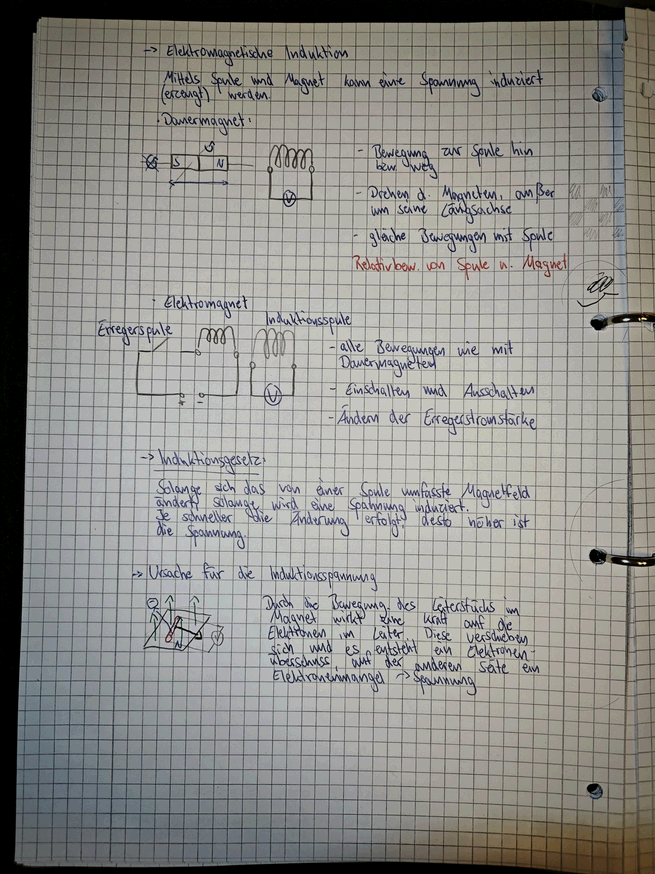 -> Elektromagnetische Induktion
Mittels Spule und Magnet kann eine Spannung induziert
(erzeugt) werden.
· Dauermagnet:
S N
V
- Bewegung zur Spule hin
bzw. weg
- Drehen d. Magneten, außer
um seine Längsachse
- gleiche Bewegungen mit Spule
Relativbew. von Spule u. Magnet
· Elektromagnet
Erregerspule
Induktionsspule
+ -
V
- alle Bewegungen wie mit
Dauermagneten
- Einschalten und Ausschalten
- Ändern der Erregerstromstärke
-> Induktionsgesetz:
Solange sich das von einer Spule umfasste Magnetfeld
ändert, solange wird eine Spannung induziert.
Je schneller die Änderung erfolgt, desto höher ist
die Spannung.
-> Ursache für die Induktionsspannung
N
Durch die Bewegung des Leiterstücks im
Magnet wirkt eine Kraft auf die
Elektronen im Leiter. Diese verschieben
sich und es entsteht ein Elektronen-
überschuss, auf der anderen Seite ein
Elektronenmangel -> Spannung